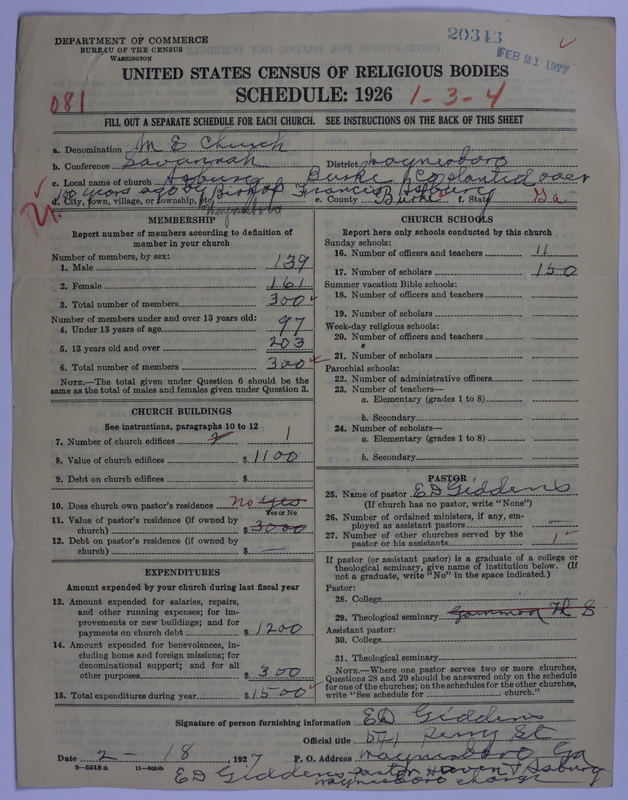 DEPARTMENT OF COMMERCE
BUREAU OF THE CENSUS
WASHINGTON
20343
FEB 21 1927
UNITED STATES CENSUS OF RELIGIOUS BODIES
081
SCHEDULE: 1926 1-3-4
FILL OUT A SEPARATE SCHEDULE FOR EACH CHURCH. SEE INSTRUCTIONS ON THE BACK OF THIS SHEET
a. Denomination M E Church
b. Conference Savannah District Waynesboro
c. Local name of church Asbury Burke Co planted over
100 years ago by Bishop Francis Asbury
d. City, town, village, or township, etc. Waynesboro e. County Burke f. State Ga
MEMBERSHIP
Report number of members according to definition of
member in your church
Number of members, by sex:
1. Male 139
2. Female 161
3. Total number of members 300
Number of members under and over 13 years old:
4. Under 13 years of age 97
5. 13 years old and over 203
6. Total number of members 300
NOTE.—The total given under Question 6 should be the
same as the total of males and females given under Question 3.
CHURCH BUILDINGS
See instructions, paragraphs 10 to 12
7. Number of church edifices 2 1
8. Value of church edifices $ 1100
9. Debt on church edifices $
10. Does church own pastor's residence No yes
Yes or No
11. Value of pastor's residence (if owned by
church) $ 3000
12. Debt on pastor's residence (if owned by
church) $ —
EXPENDITURES
Amount expended by your church during last fiscal year
13. Amount expended for salaries, repairs,
and other running expenses; for im-
provements or new buildings; and for
payments on church debt $ 1200
14. Amount expended for benevolences, in-
cluding home and foreign missions; for
denominational support; and for all
other purposes $ 300
15. Total expenditures during year $ 1500
CHURCH SCHOOLS
Report here only schools conducted by this church
Sunday schools:
16. Number of officers and teachers 11
17. Number of scholars 150
Summer vacation Bible schools:
18. Number of officers and teachers
19. Number of scholars
Week-day religious schools:
20. Number of officers and teachers
21. Number of scholars
Parochial schools:
22. Number of administrative officers
23. Number of teachers—
a. Elementary (grades 1 to 8)
b. Secondary
24. Number of scholars—
a. Elementary (grades 1 to 8)
b. Secondary
PASTOR
25. Name of pastor E D Giddens
(If church has no pastor, write "None")
26. Number of ordained ministers, if any, em-
ployed as assistant pastors —
27. Number of other churches served by the
pastor or his assistants 1
If pastor (or assistant pastor) is a graduate of a college or
theological seminary, give name of institution below. (If
not a graduate, write "No" in the space indicated.)
Pastor:
28. College
29. Theological seminary Gammon Th S
Assistant pastor:
30. College
31. Theological seminary
NOTE.—Where one pastor serves two or more churches,
Questions 28 and 29 should be answered only on the schedule
for one of the churches; on the schedules for the other churches,
write "See schedule for church."
Signature of person furnishing information E D Giddens
Official title Perry St
Date 2-18, 1927 P. O. Address Waynesboro Ga
8—5518 a 11—9051b
E D Giddens Pastor Haven & Asbury
Waynesboro charge